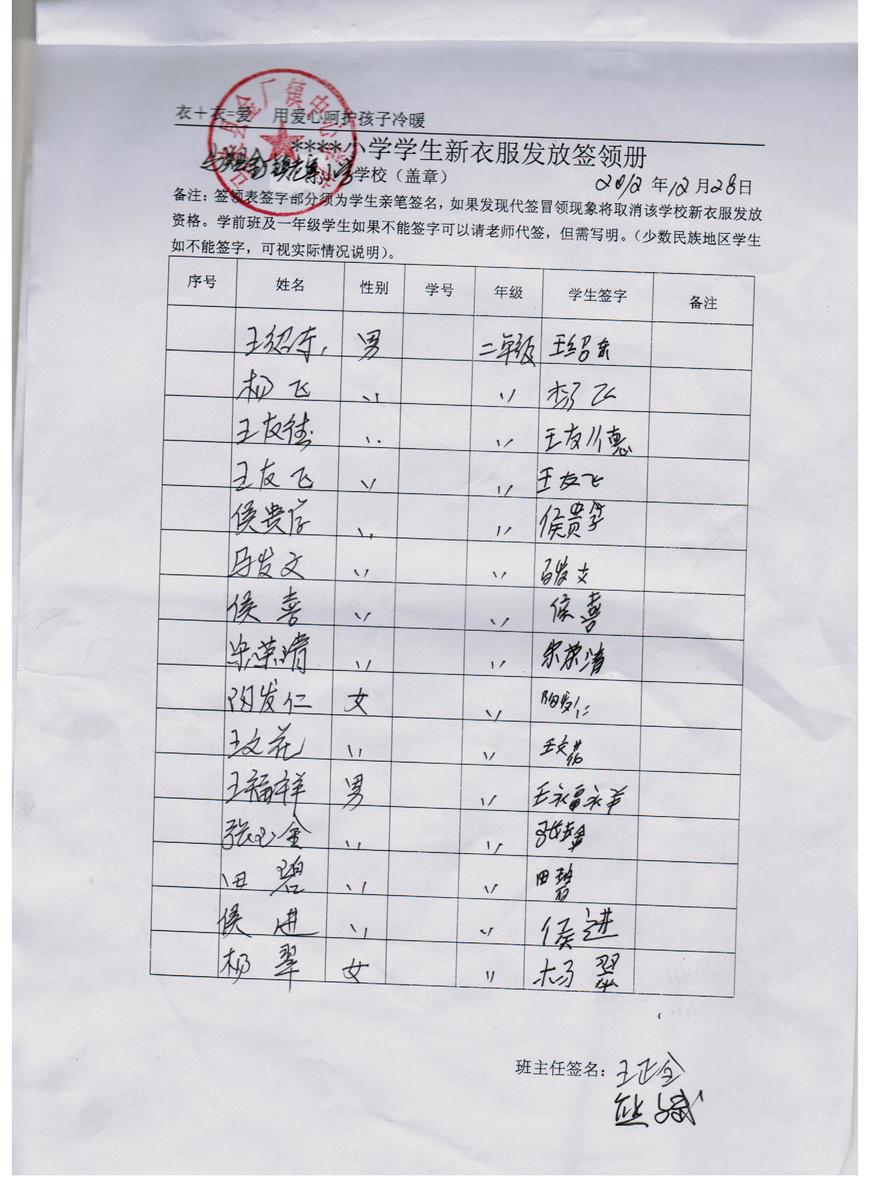 衣+衣=爱 用爱心呵护孩子冷暖
****小学学生新衣服发放签领册
学校（盖章） 2012年12月28日
备注：签领表签字部分须为学生亲笔签名，如果发现代签冒领现象将取消该学校新衣服发放
资格。学前班及一年级学生如果不能签字可以请老师代签，但需写明。（少数民族地区学生
如不能签字，可视实际情况说明）。
序号 姓名 性别 学号 年级 学生签字 备注
王绍东 男 二年级 王绍东
杨飞 〃 〃 杨飞
王友德 〃 〃 王友德
王友飞 〃 〃 王友飞
侯贵学 〃 〃 侯贵学
马发文 〃 〃 马发文
侯喜 〃 〃 侯喜
宋荣清 〃 〃 宋荣清
陶发仁 女 〃 陶发仁
王文花 〃 〃 王文花
王福祥 男 〃 王福祥
张玉金 〃 〃
田碧 〃 〃 田碧
侯进 〃 〃 侯进
杨翠 女 〃 杨翠
班主任签名：王正全